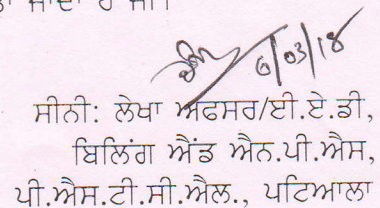 ਜਾਂਦਾ ਹੈ ਜੀ।
6/03/18
ਸੀਨੀ: ਲੇਖਾ ਅਫਸਰ/ਈ.ਏ.ਡੀ,
ਬਿਲਿੰਗ ਐਂਡ ਐਨ.ਪੀ.ਐਸ,
ਪੀ.ਐਸ.ਟੀ.ਸੀ.ਐਲ., ਪਟਿਆਲਾ